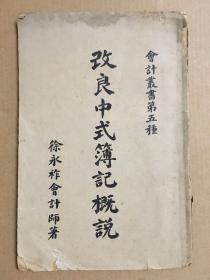 會計叢書第五種
改良中式簿記概説
徐永祚會計師著